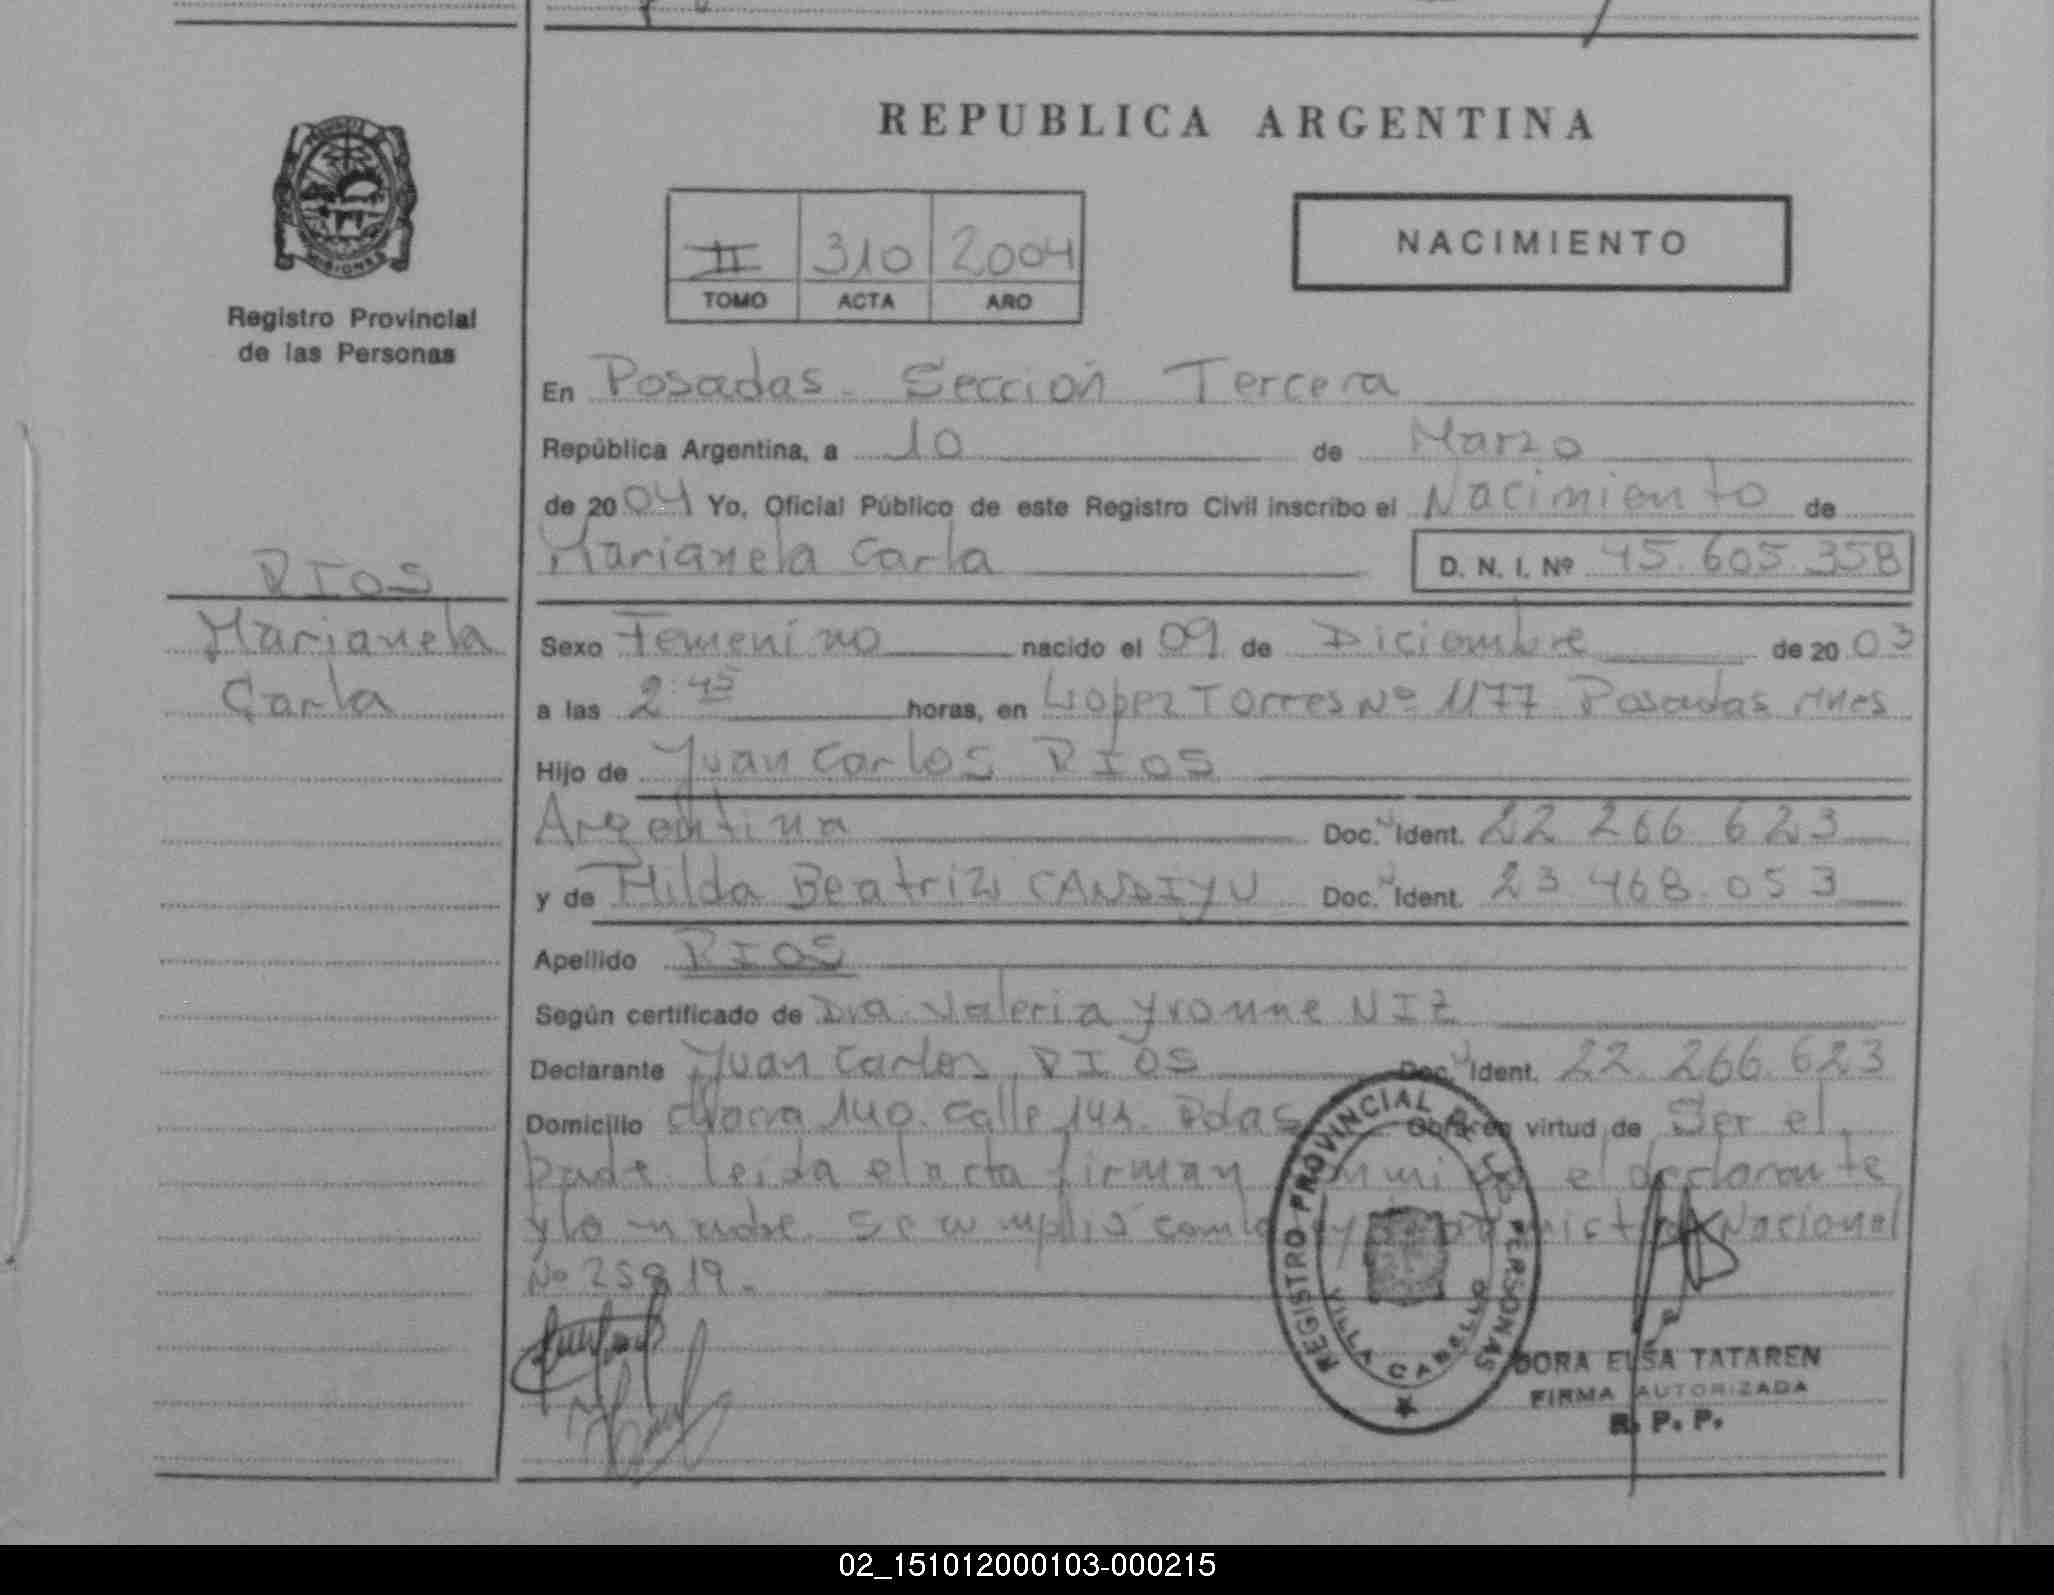 REPUBLICA ARGENTINA
MISIONES
Registro Provincial
de las Personas
II 310 2004
TOMO ACTA AÑO
NACIMIENTO
En Posadas - Sección Tercera
República Argentina, a 10 de Marzo
de 2004 Yo, Oficial Público de este Registro Civil inscribo el Nacimiento de
Marianela Carla D. N. I. Nº 45.605.358
RIOS
Marianela
Carla
Sexo Femenino nacido el 09 de Diciembre de 2003
a las 2:45 horas, en López Torres Nº 1177 Posadas Mnes
Hijo de Juan Carlos RIOS
Argentina Doc. Ident. 22 266 623
y de Hilda Beatriz CANDIYU Doc. Ident. 23.468.053
Apellido RIOS
Según certificado de Dra. Valeria Yvonne NIZ
Declarante Juan Carlos RIOS Doc. Ident. 22.266.623
Domicilio Chacra 140. Calle Pdas Obra en virtud de Ser el
padre leida el acta firman el declarante
y la madre. Se cumplió con Nacional
Nº 25819.
REGISTRO PROVINCIAL DE LAS PERSONAS
VILLA CABELLO
DORA ELSA TATAREN
FIRMA AUTORIZADA
R. P. P.
02_151012000103-000215